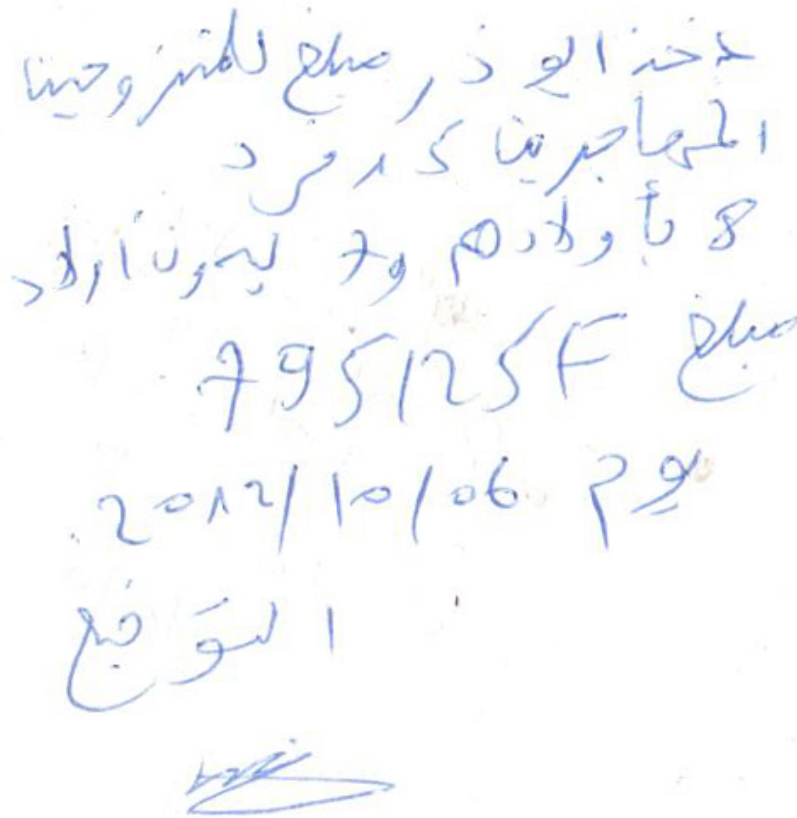 أخذ ابو ذر مبلغ للمتزوجين
المهاجرين 15 فرد
8 بأولادهم و7 بدون أولاد
مبلغ 795125F
يوم 2012/10/06
التوقيع